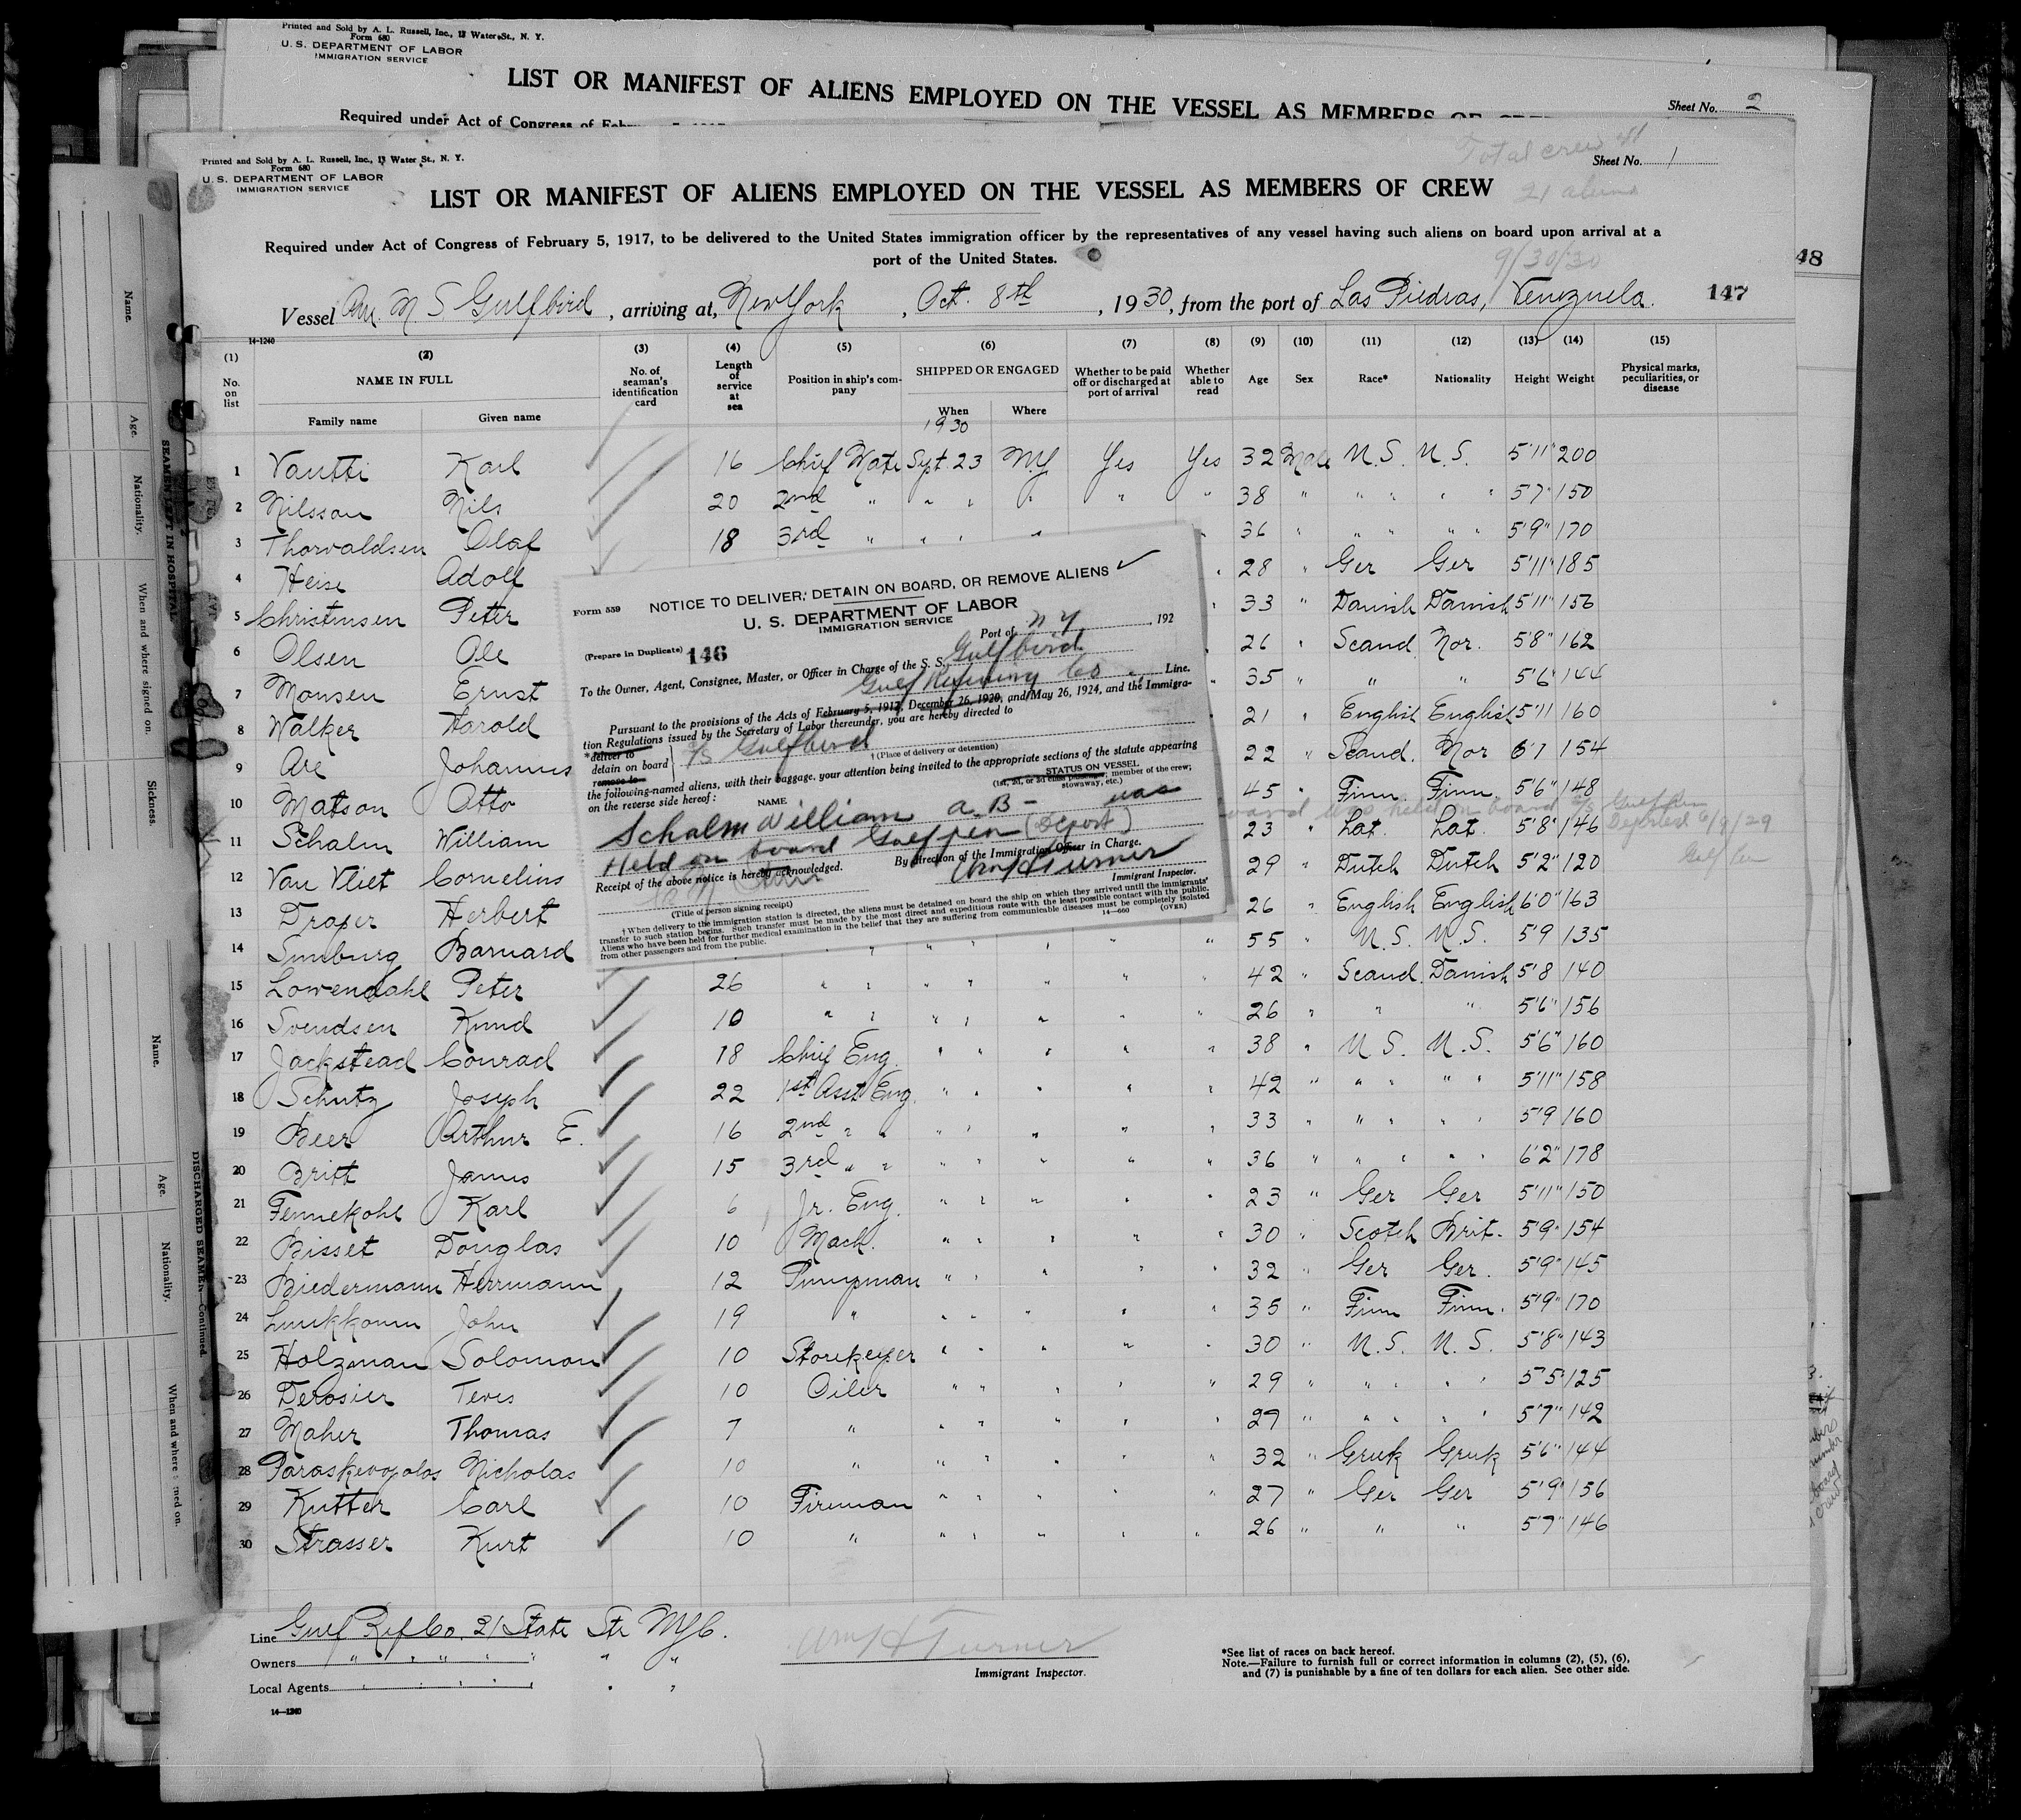 Printed and Sold by A. L. Russell, Inc., 13 Water St., N. Y.
Form 680
U. S. DEPARTMENT OF LABOR
IMMIGRATION SERVICE
LIST OR MANIFEST OF ALIENS EMPLOYED ON THE VESSEL AS MEMBERS OF
Sheet No. 2
Required under Act of Congress of
Printed and Sold by A. L. Russell, Inc., 13 Water St., N. Y.
Form 680
U. S. DEPARTMENT OF LABOR
IMMIGRATION SERVICE
Total crew 41
Sheet No. 1
LIST OR MANIFEST OF ALIENS EMPLOYED ON THE VESSEL AS MEMBERS OF CREW
21 aliens
Required under Act of Congress of February 5, 1917, to be delivered to the United States immigration officer by the representatives of any vessel having such aliens on board upon arrival at a
port of the United States.
9/30/30
48
Vessel Am. M S Gulfbird, arriving at, New York, Oct. 8th, 1930, from the port of Las Piedras, Venezuela. 147
14-1240
(1) (2) (3) (4) (5) (6) (7) (8) (9) (10) (11) (12) (13) (14) (15)
No. on list
NAME IN FULL
Family name Given name
No. of seaman's identification card
Length of service at sea
Position in ship's company
SHIPPED OR ENGAGED
When Where
1930
Whether to be paid off or discharged at port of arrival
Whether able to read
Age Sex Race* Nationality Height Weight
Physical marks, peculiarities, or disease
1 Vautti Karl 16 Chief Mate Sept. 23 NY Yes Yes 32 Male U.S. U.S. 5'11" 200
2 Nilsson Nils 20 2nd " " " " " " 38 " " " " " 5'7" 150
3 Thorvaldsen Olaf 18 3rd " " " " 36 " " " " " 5'9" 170
4 Heise Adolf 28 " Ger Ger 5'11" 185
5 Christensen Peter 33 " Danish Danish 5'11" 156
6 Olsen Ole 26 " Scand Nor. 5'8" 162
7 Monsen Ernst 35 " " " 5'6" 144
8 Walker Harold 21 " English English 5'11 160
9 Are Johannes 22 " Scand. Nor 6'1 154
10 Matson Otto 45 " Finn. Finn. 5'6" 148
11 Schalm William 23 " Lat. Lat. 5'8" 146 Deported 6/9/29
12 Van Vliet Cornelius 29 " Dutch Dutch 5'2" 120
13 Draper Herbert 26 " English English 6'0" 163
14 Sunburg Barnard " " " " " " 55 " U.S. U.S. 5'9 135
15 Lowendahl Peter 26 " " " " " " " 42 " Scand. Danish 5'8 140
16 Svendsen Knud 10 " " " " " " " 26 " " " 5'6" 156
17 Jackstead Conrad 18 Chief Eng. " " " " " 38 " U.S. U.S. 5'6" 160
18 Schutz Joseph 22 1st Asst Eng. " " " " " 42 " " " " " 5'11" 158
19 Beer Arthur E. 16 2nd " " " " " " " 33 " " " " " 5'9 160
20 Britt James 15 3rd " " " " " " " 36 " " " " " 6'2" 178
21 Fennekohl Karl 6 Jr. Eng. " " " " " 23 " Ger Ger 5'11" 150
22 Bisset Douglas 10 Mach. " " " " " 30 " Scotch Brit. 5'9" 154
23 Biedermann Herrmann 12 Pumpman " " " " " 32 " Ger Ger. 5'9" 145
24 John 19 " " " " " " 35 " Finn Finn. 5'9" 170
25 Holzman Solomon 10 Storekeeper " " " " " 30 " U.S. U.S. 5'8" 143
26 Derosier Teves 10 Oiler " " " " " 29 " " " " " 5'5" 125
27 Maher Thomas 7 " " " " " " 29 " " " " " 5'7" 142
28 Paraskevopolos Nicholas 10 " " " " " " 32 " Greek Greek 5'6" 144
29 Kutter Carl 10 Fireman " " " " " 27 " Ger Ger 5'9" 156
30 Strasser Kurt 10 " " " " " " 26 " " " 5'7" 146
Form 559
NOTICE TO DELIVER, DETAIN ON BOARD, OR REMOVE ALIENS
U. S. DEPARTMENT OF LABOR
IMMIGRATION SERVICE
(Prepare in Duplicate) 146
Port of N Y, 192
To the Owner, Agent, Consignee, Master, or Officer in Charge of the S. S. Gulfbird
Gulf Refining Co Line.
Pursuant to the provisions of the Acts of February 5, 1917, December 26, 1920, and May 26, 1924, and the Immigra-
tion Regulations issued by the Secretary of Labor thereunder, you are hereby directed to
*deliver to
detain on board
remove to
S/S Gulfbird
†(Place of delivery or detention)
the following-named aliens, with their baggage, your attention being invited to the appropriate sections of the statute appearing
on the reverse side hereof:
NAME
STATUS ON VESSEL
(1st, 2d, or 3d class passenger; member of the crew; stowaway, etc.)
Schalm William A.B - was
Held on board Gulfpen (Deport)
Receipt of the above notice is hereby acknowledged.
By direction of the Immigration Officer in Charge.
Wm H Turner
Immigrant Inspector.
(Title of person signing receipt)
†When delivery to the immigration station is directed, the aliens must be detained on board the ship on which they arrived until the immigrants'
transfer to such station begins. Such transfer must be made by the most direct and expeditious route with the least possible contact with the public.
Aliens who have been held for further medical examination in the belief that they are suffering from communicable diseases must be completely isolated
from other passengers and from the public.
14—660 (OVER)
Line Gulf Ref Co. 21 State Str NYC.
Owners " " " " " " "
Local Agents " " " " " "
14—1240
Wm H Turner
Immigrant Inspector.
*See list of races on back hereof.
Note.—Failure to furnish full or correct information in columns (2), (5), (6),
and (7) is punishable by a fine of ten dollars for each alien. See other side.
Name.
Age.
Nationality.
When and where signed on.
Sickness.
SEAMEN LEFT IN HOSPITAL
Name.
Age.
Nationality.
When and where signed on.
DISCHARGED SEAMEN—Continued.